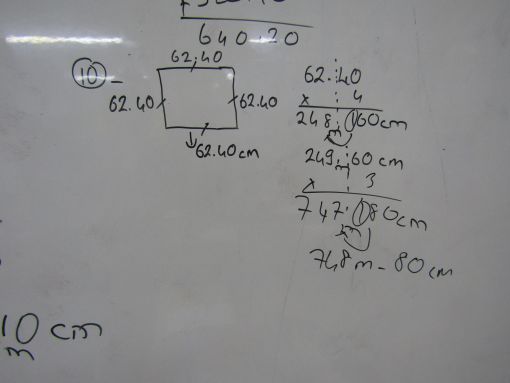 640.20
10 -
62,40
62.40
62.40
62.40 cm
62.40
x 4
248.160cm
m
249.60 cm
m
x 3
747.180cm
m
748m - 80cm
10 cm
m